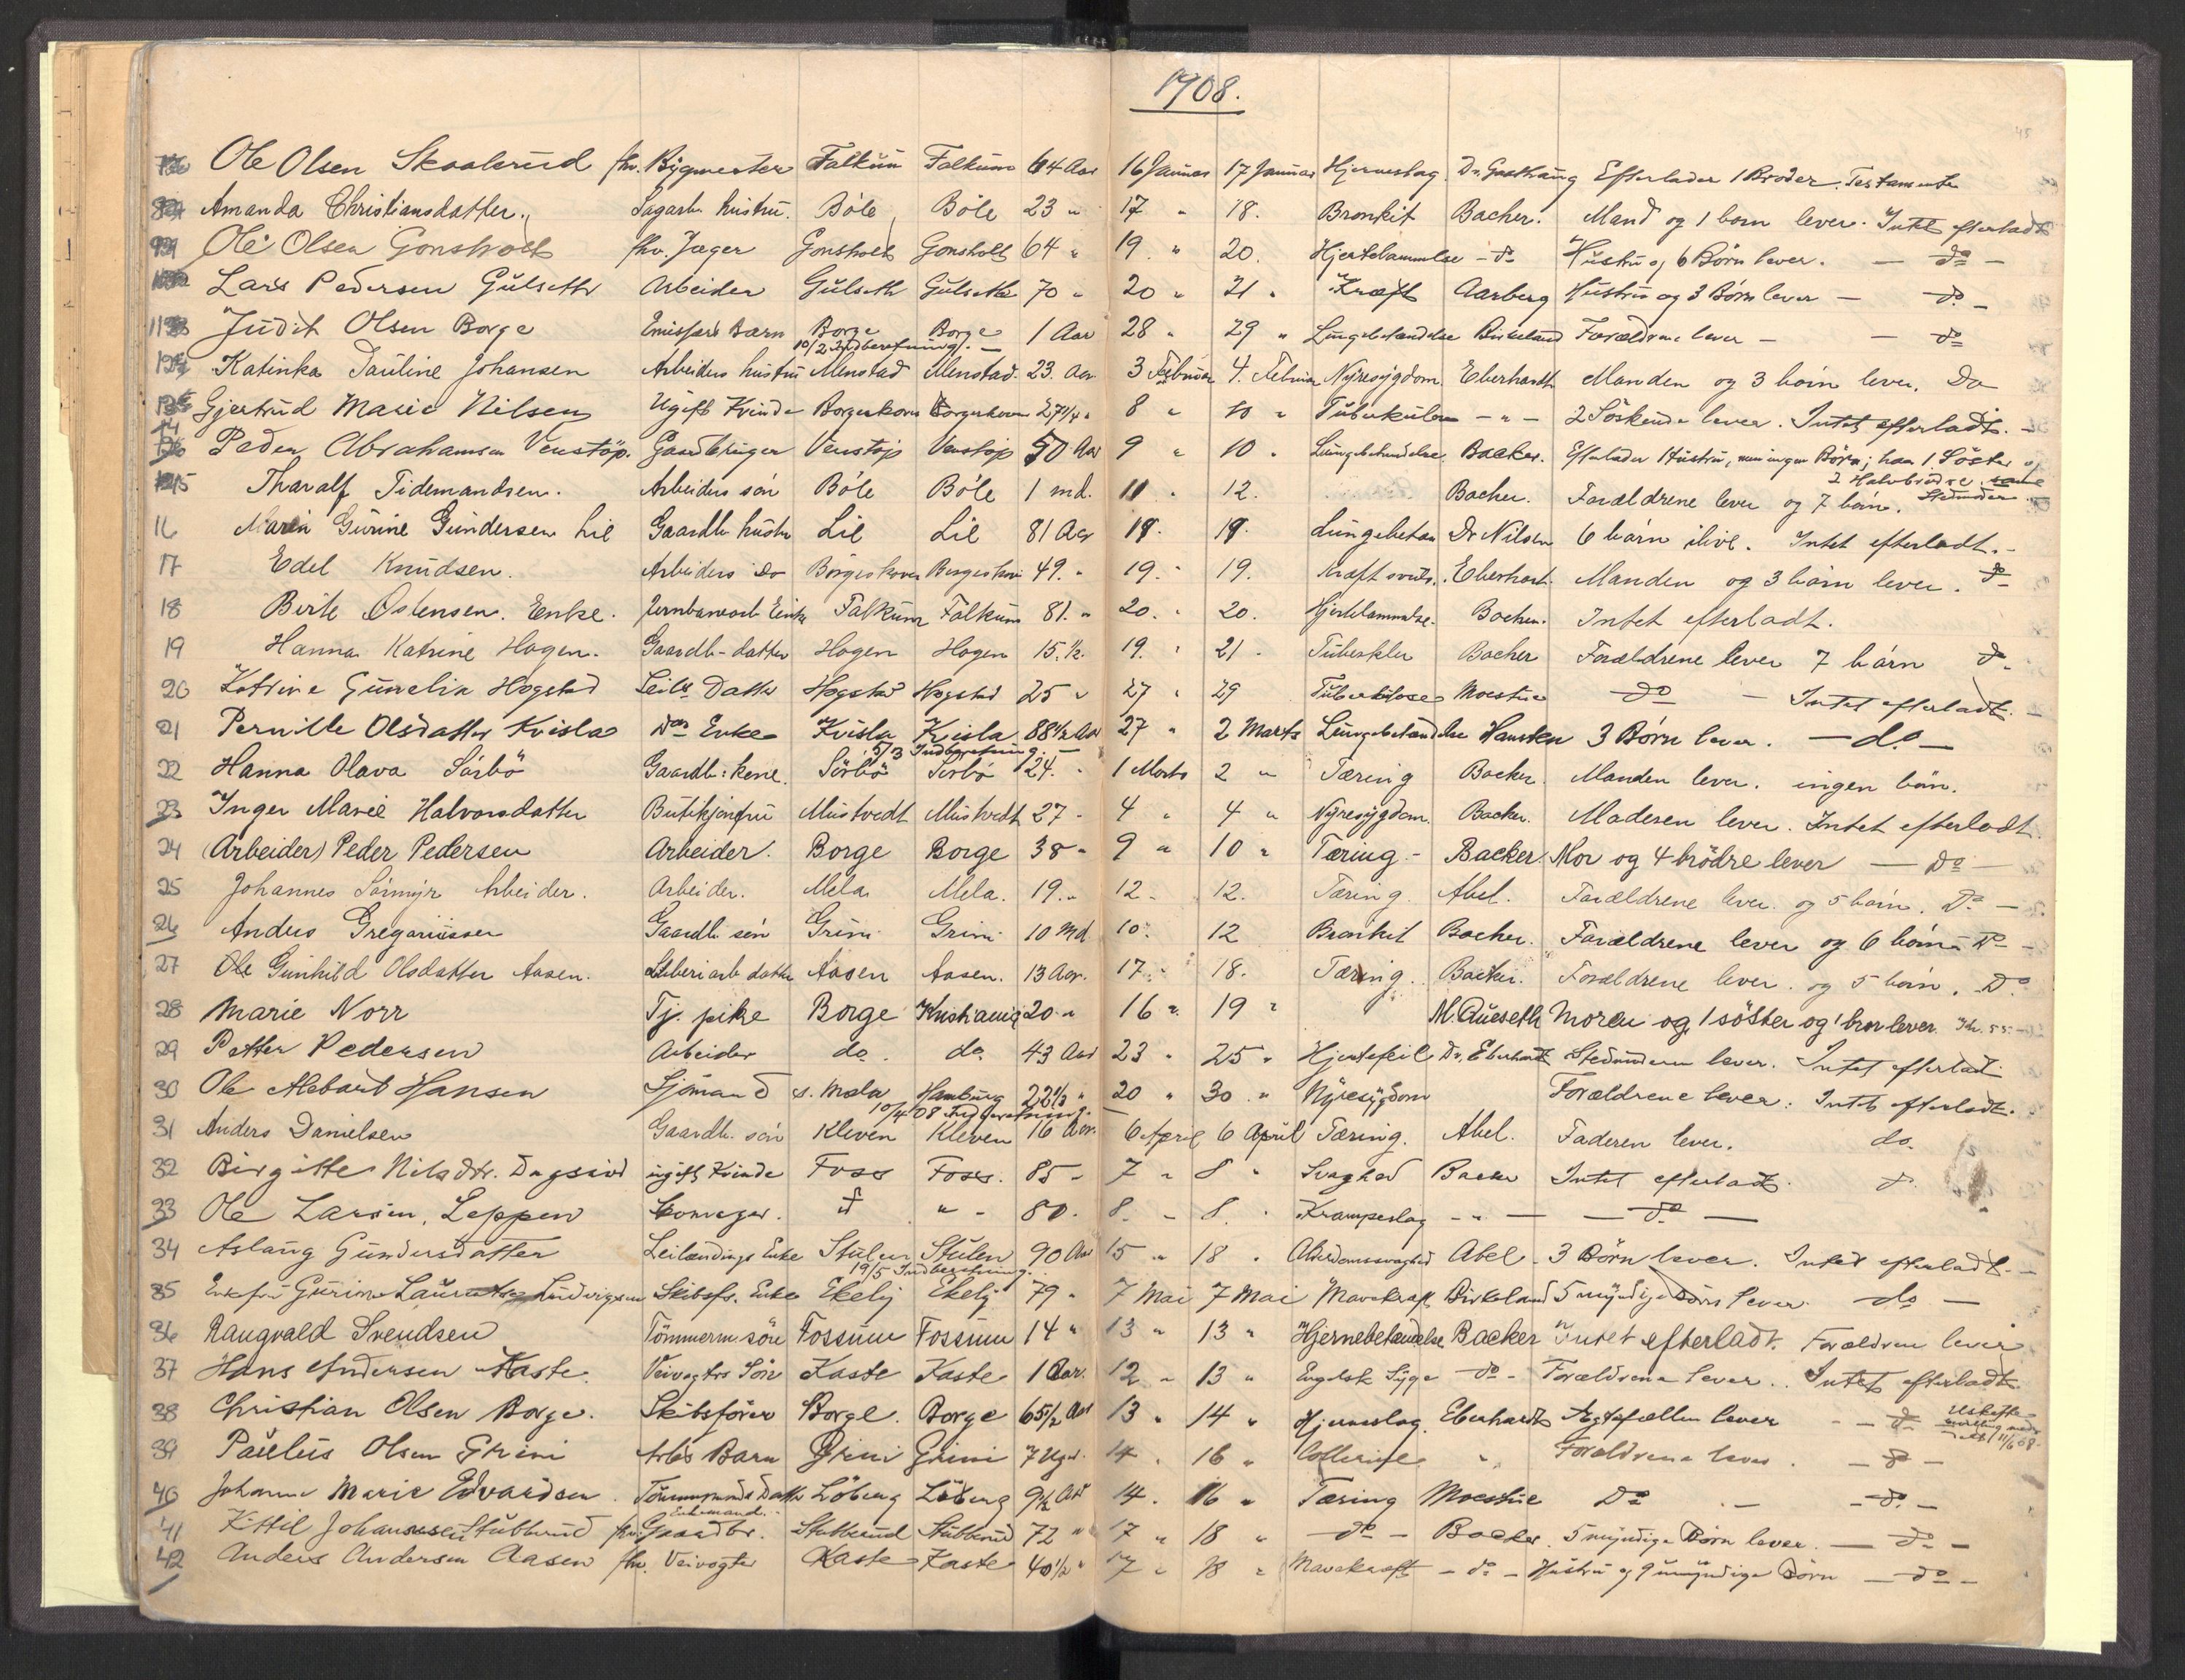 1908.
Ole Olsen Skaalerud fhv. Bygmester Falkum Falkum 64 Aar 16 Januar 17 Januar Hjerneslag. Dr. Gaathaug Efterlader 1 Broder. Testamente
Amanda Christiansdatter. Sagarb. hustru. Böle Böle 23 " 17 " 18. Bronkit Backer. Mand og 1 barn lever. Intet efterladt
9 Ole Olsen Gonsholt fhv. Jæger Gonsholt Gonsholt 64 " 19 " 20. Hjertelammelse - do Hustru og 6 Børn lever. - do -
Lars Pedersen Gulseth Arbeider Gulseth Gulseth 70 " 20 " 21 " Kræft Aarberg Hustru og 3 Børn lever - do -
11 Judit Olsen Borge Emissærs Barn Borge Borge 1 Aar 28 " 29 " Lungebetændelse Birkeland Forældrene lever - - do
10/2 Indberetning. -
12 Katinka Pauline Johansen Arbeiders hustru Menstad Menstad. 23. Aar 3 Februar 4. Februar Nyresygdom. Eberhardt Manden og 3 børn lever. Do
13 Gjertrud Marie Nilsen Ugift Kvinde Borgeskoven Borgeskoven 27 1/4 " 8 " 10 " Tuberkulose - " - 2 Söskende lever. Intet efterladt. -
14 Peder Abrahamsen Venstöp. Gaardbruger Venstöp Venstöp 50 Aar 9 " 10 " Lungebetændelse. Backer. Efterlader Hustru, men ingen Børn; har 1 Söster og
2 Halvbrödre.
15 Tharalf Tidemandsen. Arbeiders sön Böle Böle 1 md. 11 " 12. Backer. Forældrene lever og 7 börn.
16 Maren Gurine Gundersen Lie Gaardb. hustru Lie Lie 81 Aar Lungebetæn Dr Nilsen 6 börn ilive. Intet efterladt. -
17 Edel Knudsen. Arbeiders Do Borgeskoven Borgeskov 49. " 19. " 19. Kræftsvuls. Eberhart. Manden og 3 börn lever. do
18 Berte Østensen. Enke. Jernbanearb. Enke Falkum Falkum 81. " 20. " 20. Hjertelammelse. Backer. Intet efterladt.
19 Hanna Katrine Hagen. Gaardb-datter Hagen Hagen 15. 1/2. 19. " 21 - Tuberkler Backer Forældrene lever 7 börn do
20 Katrine Gunelia Hogstad Leil. Datter Hogstad Hogstad 25 " 27 " 29 Tuberkulose Moestue do - Intet efterladt. -
21 Pernille Olsdatter Kvisla Do Enke Kvisla Kvisla 88 1/2 Aar 27 " 2 Marts Lungebetændelse Hansken 3 Børn lever. - do -
5/3 Indberetning. -
22 Hanna Olava Sörbö Gaardb: kone. Sörbö Sörbö 24. " 1 Marts 2 " Tæring Backer. Manden lever. ingen börn.
23 Inger Marie Halvorsdatter Butikjomfru Mustvedt Mustvedt 27 - 4 " 4 " Nyresygdom. Backer. Moderen lever. Intet efterladt.
24 (Arbeider) Peder Pedersen Arbeider. Borge Borge 38 " 9 " 10 " Tæring - Backer Mor og 4 brödre lever - do
25 Johannes Sörmyr Arbeider. Arbeider. Mela Mela. 19. " 12. 12. Tæring Abel. Forældrene lever og 5 börn. Do -
26 Anders Gregariussen Gaardb. sön Grini Grini 10 Md 10. 12 Bronkit Backer. Forældrene lever og 6 börn - Do -
27 Ole Gunhild Olsdatter Aasen. datter Aasen Aasen. 13 Aar. 17. 18. Tæring. Backer. Forældrene lever og 5 börn. Do
28 Marie Norr Tj. pike Borge Kristiania 20 " 16 " 19 " M. Aueseth Moren og 1 söster og 1 bror lever.
29 Petter Pedersen Arbeider do. do. 43 Aar 23 " 25 " Hjertefeil Dr. Eberhardt Stedmoderen lever. Intet efterladt
30 Ole Alebart Hansen Sjömand s. Mæla Hamburg 22 1/3 " 20 " 30 " Nyresygdom Forældrene lever. Intet efterladt.
10/4 08 Indberetning.
31 Anders Danielsen Gaardb. sön Kleven Kleven 16 Aar. 6 April 6 April Tæring. Abel. Faderen lever. do.
32 Birgitte Nilsdtr. Dagsivd ugift Kvinde Foss Foss. 85 - 7 " 8 " Svaghed Backer Intet efterladt. do
33 Ole Larsen, Leppen do " - 80. 8. " 8. " Krampeslag - " - - do -
34 Aslaug Gundersdatter Leilændings Enke Stulen Stulen 90 Aar 15 " 18 " Alderdomssvaghed Abel - 3 Børn lever. Intet efterladt. -
19/5 Indberetning.
35 Enkefru Gurine Ludvigsen Skibsfs. Enke Ekelij Ekelij 79 " 7 Mai 7 Mai Mavekræft Birkeland 5 myndige Börn lever. do -
36 Rangvald Svendsen Tömmerm. sön Fossum Fossum 14 " 13 " 13 " Hjernebetændelse Backer Intet efterladt. Forældrene lever
37 Hans Andersen Kaste. Veivogters Sön Kaste Kaste 1 Aar. 12 " 13 " Engelsk Syge - do - Forældrene lever. Intet efterladt.
38 Christian Olsen Borge. Skibsförer Borge. Borge 65 1/2 Aar 13 " 14 " Hjerneslag. Eberhardt Ægtefællen lever - do
39 Paulus Olsen Grini Arbs Barn Grini Grini 7 Uger. 14 " 16 " Collerine " Forældrene lever. - do -
40 Johanne Marie Edvardsen Tömmermands Datter Löberg Löberg 9 1/2 Aar 14. 16 " Tæring Moestue Do - - do -
Enkemand.
41 Kittil Johannesen Stubberud fhv. Gaardbr. Stubberud Stubberud 72 " 17 " 18 " - do - Backer. 5 myndige Børn lever. - do -
42 Anders Andersen Aasen fhv. Veivogter Kaste Kaste 40 1/2 " 17 " 18 " Mavekræft - do - Hustru og 9 umyndige Børn - do -